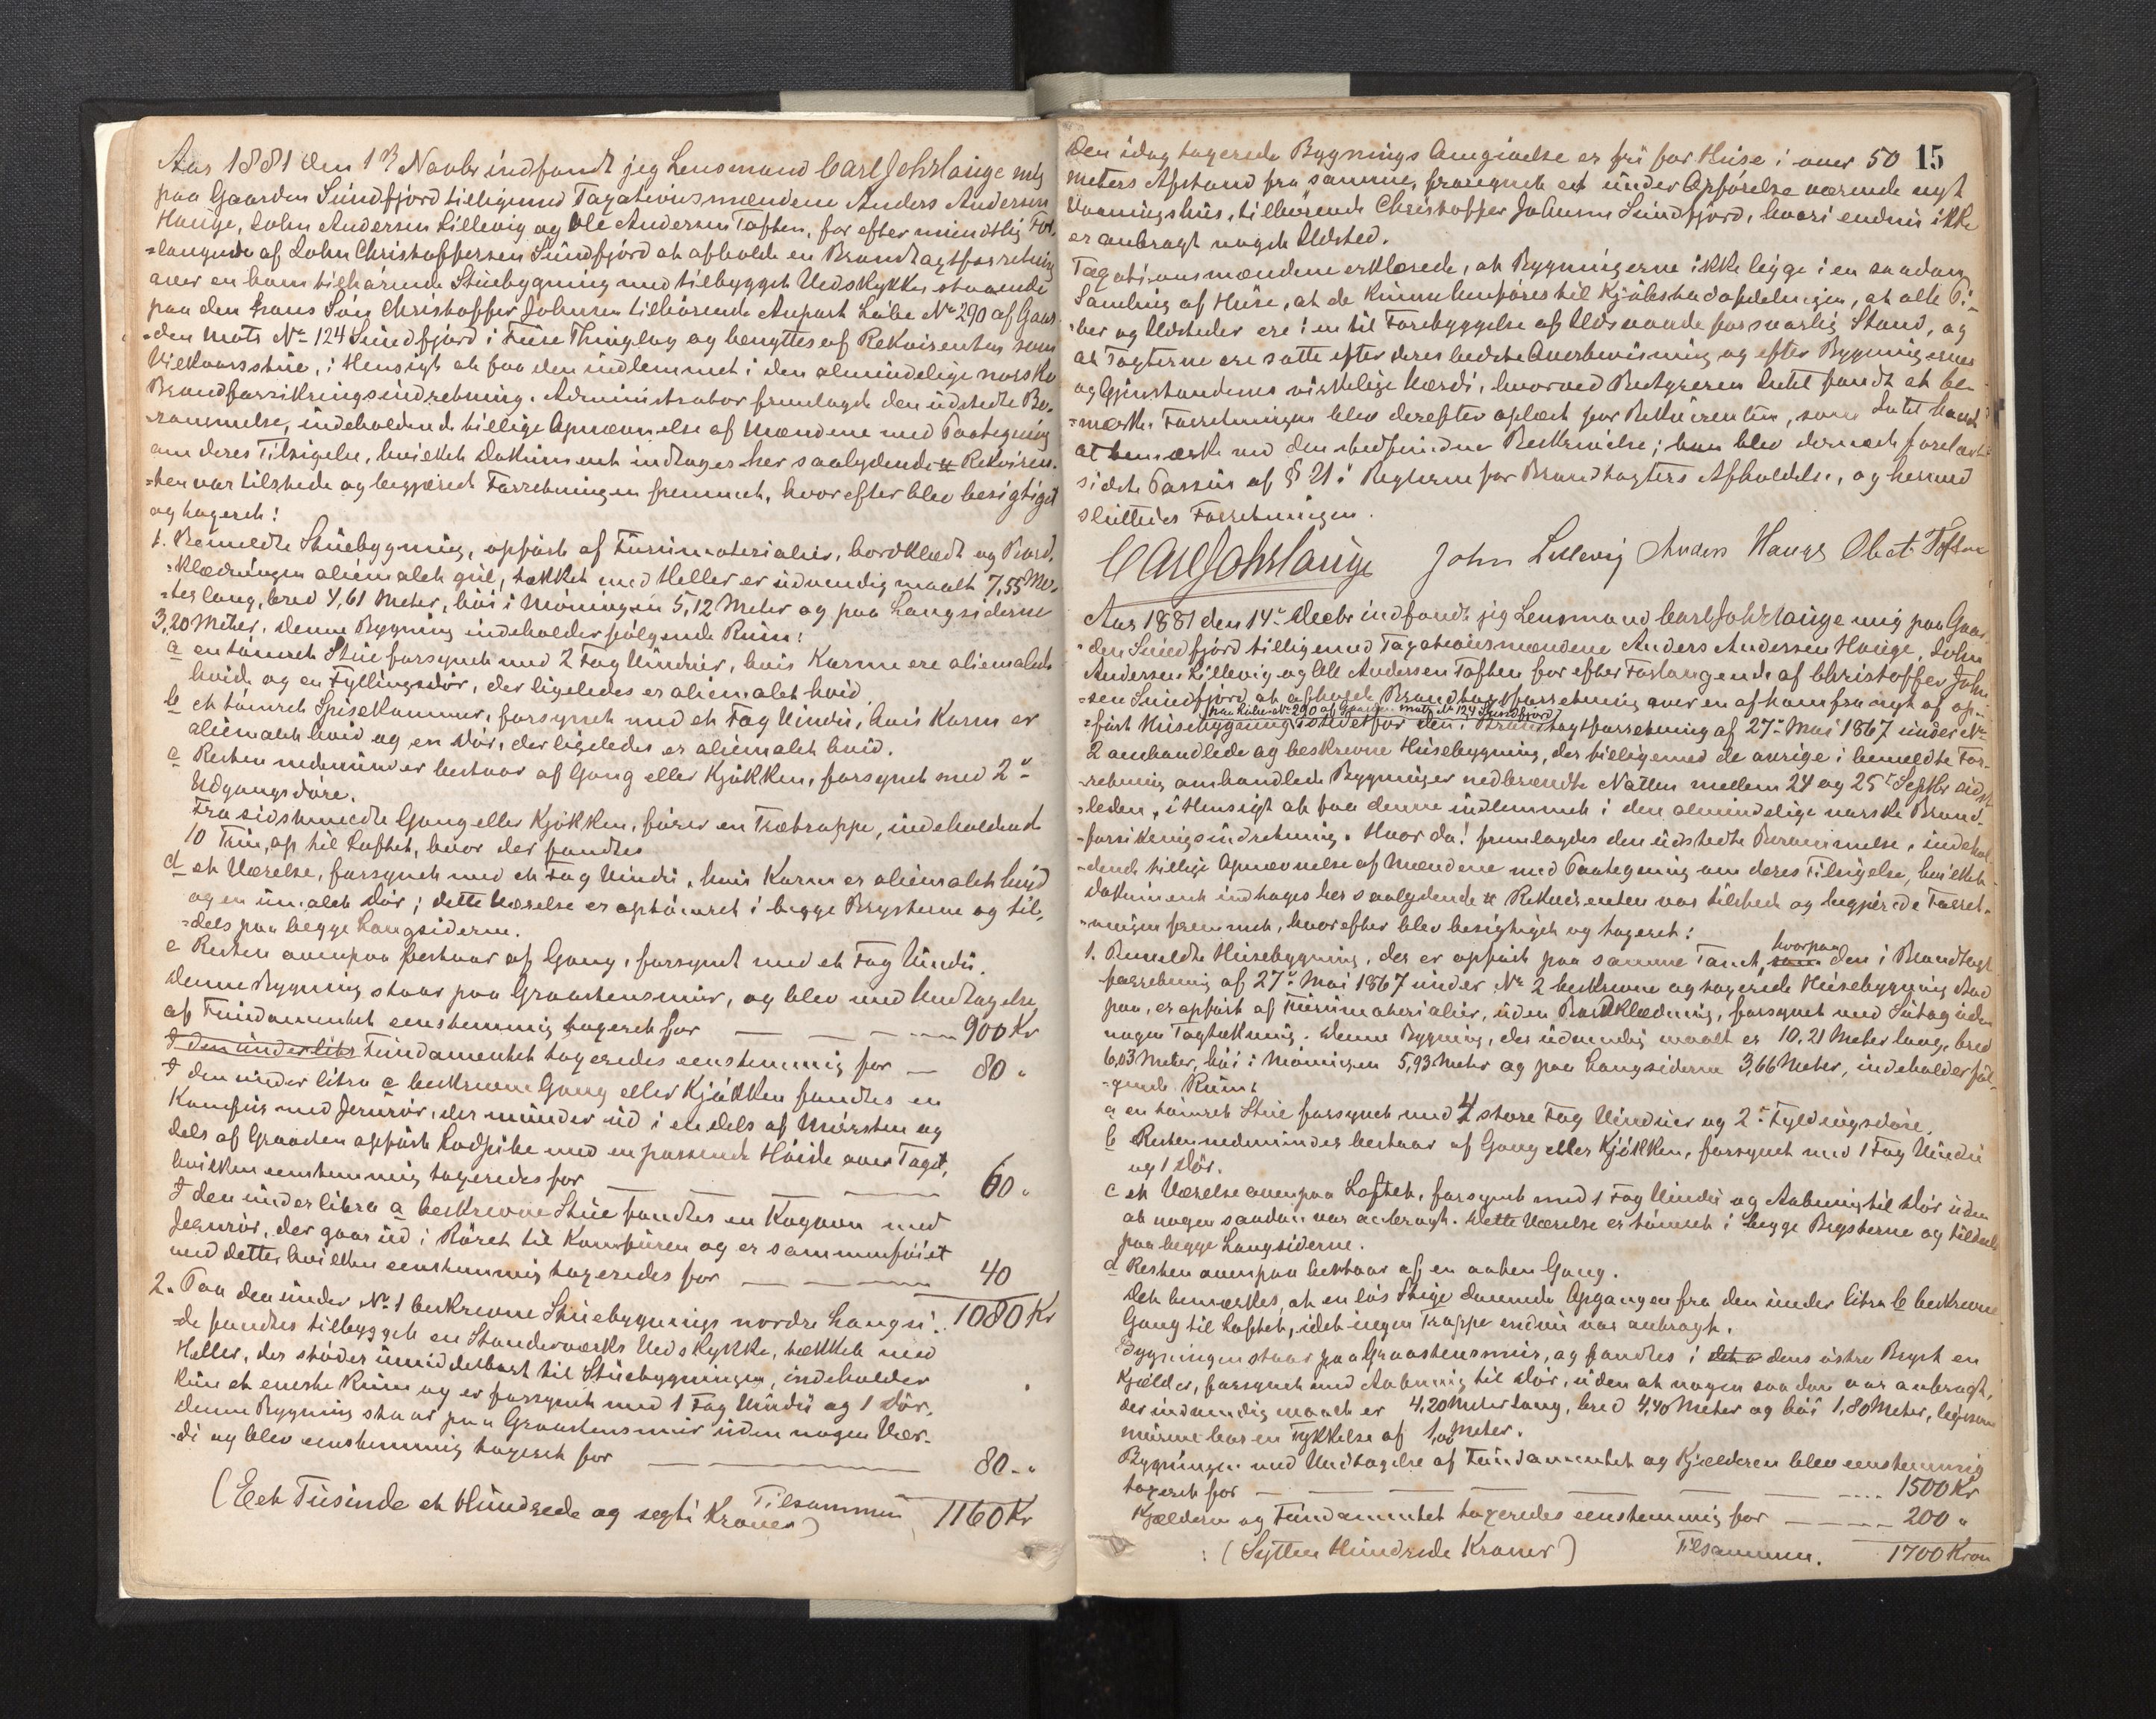 Aar 1881 den 1ste Novbr indfandt jeg Lensmand Carl Joh. Hauge mig
paa Gaarden Sundfjord tilligemed Taxationsmændene Anders Andersen
Hauge, John Andersen Lillevig og Ole Andersen Toften, for efter mundtlig For-
=langende af John Christoffersen Sundfjord at afholde en Brandtaxtforretning
over en ham tilhørende Stuebygning med tilbygget Vedskykke, staaende
paa den hans Søn Christoffer Johnsen tilhørende Anpart Løbe No 290 af Gaar-
=den Matr No 124 Sundfjord i Fuse Thinglag og benyttes af Rekvirenten som
Vilkaarsstue, i Hensigt at faa den indlemmet i den almindelige norske
Brandforsikringsindretning. Administrator fremlagde den udstedte Be-
=rammelse, indeholdende tillige Opnævnelse af Mændene med Paategning
om deres Tilsigelse, hvilket Dokument indtages her saalydende x Rekviren-
=ten var tilstede og begjærede Forretningen fremmet, hvorefter blev besigtiget
og taxeret:
1. Bemeldte Stuebygning, opført af Furumaterialier, bordklædt og Bord-
=klædningen oliemalet gul, tækket med Heller er udvendig maalt 7,55 Me-
=ter lang, bred 4,61 Meter, høi i Møningen 5,12 Meter og paa Langsiderne
3,20 Meter. Denne Bygning indeholder følgende Rum:
a en tømret Stue forsynet med 2 Fag Vinduer, hvis Karme ere oliemalede
hvide og en Fyllingsdør, der ligeledes er oliemalet hvid.
b et tømret Spisekammer, forsynet med et Fag Vindu, hvis Karm er
oliemalet hvid og en Dør, der ligeledes er oliemalet hvid.
c Resten nedenunder bestaar af Gang eller Kjøkken, forsynet med 2de
Udgangsdøre.
Fra sidstmeldte Gang eller Kjøkken, fører en Trætrappe, indeholdende
10 Trin, op til Loftet, hvor der fandtes
d et Værelse, forsynet med et Fag Vindu, hvis Karm er oliemalet hvid
og en umalet Dør; dette Værelse er optømret i begge Brysterne og til-
=dels paa begge Langsiderne.
e Resten ovenpaa bestaar af Gang, forsynet med et Fag Vindu.
Denne Bygning staar paa Graastensmur, og blev med Undtagelse
af Fundamentet eenstemmig taxeret for — — 900 Kr
I den under litr Fundamentet taxeredes eenstemmig for — 80 "
I den under litra c beskrevne Gang eller Kjøkken fandtes en
Komfur med Jernrør, der munder ud i en dels af Mursten og
dels af Graasten opført Lodpibe med en passende Høide over Taget,
hvilken eenstemmig taxeredes for — — — 60 "
I den under litra a beskrevne Stue fandtes en Kogovn med
Jernrør, der gaar ud i Røret til Komfuren og er sammenføiet
med dette, hvilken eenstemmig taxeredes for — — 40
1080 Kr
2. Paa den under No 1 beskrevne Stuebygnings nordre Langsi-
=de fandtes tilbygget en Standerværks Vedskykke, tækket med
Heller, der støder umiddelbart til Stuebygningen, indeholder
kun et eneste Rum og er forsynet med 1 Fag Vindu og 1 Dør.
Denne Bygning staar paa Graastensmur uden nogen Vær-
=di og blev eenstemmig taxeret for — — 80 - "
Tilsammen 1160 Kr
(Eet Tusinde et Hundrede og sexti Kroner)
15
Den idag taxerede Bygnings Omgivelse er fri for Huse i over 50
Meters Afstand fra samme, fraregnet et under Opførelse værende nyt
Vaaningshus, tilhørende Christoffer Johnsen Sundfjord, hvori endnu ikke
er anbragt noget Ildsted.
Taxationsmændene erklærede, at Bygningerne ikke ligge i en saadan
Samling af Huse, at de kunne henføres til Kjøbstadafdelingen, at alle Pi-
=ber og Ildsteder ere i en til Forebyggelse af Ildsvaade forsvarlig Stand, og
at Taxterne ere satte efter deres bedste Overbevisning og efter Bygningernes
og Gjenstandenes virkelige Værdi, hvorved Bestyreren Intet fandt at be-
=mærke. Forretningen blev derefter oplæst for Rekvirenten, som Intet havde
at bemærke ved den stedfundne Beskrivelse; han blev dernæst forelæst
sidste Passus af § 21 i Reglerne for Brandtaxters Afholdelse, og hermed
sluttedes Forretningen.
Carl Joh. Hauge John Lillevig Anders Hauge Ole A. Toften
Aar 1881 den 14de Decbr indfandt jeg Lensmand Carl Joh. Hauge mig paa Gaar-
=den Sundfjord tilligemed Taxationsmændene Anders Andersen Hauge, John
Andersen Lillevig og Ole Andersen Toften for efter Forlangende af Christoffer John-
=sen Sundfjord at afholde Brandtaxtforretning over en af ham fra nyt af op-
paa Løbe No 290 af Gaarden Matr No 124 Sundfjord
=ført Husebygning istedetfor den i Brandtaxtforretning af 27de Mai 1867 under No
2 omhandlede og beskrevne Husebygning, der tilligemed de øvrige i bemeldte For-
=retning omhandlede Bygninger nedbrændte Natten mellem 24 og 25de Septbr sidst-
=leden, i Hensigt at faa denne indlemmet i den almindelige norske Brand-
=forsikringsindretning. Hvor da! fremlagdes den udstedte Berammelse, indehol-
=dende tillige Opnævnelse af Mændene med Paategning om deres Tilsigelse, hvilket
Dokument indtages her saalydende x Rekvirenten var tilstede og begjærede Forret-
=ningen fremmet, hvorefter blev besigtiget og taxeret:
1. Bemeldte Husebygning, der er opført paa samme Tomt, som hvorpaa den i Brandtaxt-
forretning af 27de Mai 1867 under No 2 beskrevne og taxerede Husebygning stod
paa, er opført af Furumaterialier, uden Bordklædning, forsynet med Sutag uden
nogen Tagtækning. Denne Bygning, der udvendig maalt er 10,21 Meter lang, bred
6,03 Meter, høi i Møningen 5,93 Meter og paa Langsiderne 3,66 Meter, indeholder føl-
=gende Rum:
a en tømret Stue forsynet med 4 store Fag Vinduer og 2de Fyldingsdøre.
b Resten nedenunder bestaar af Gang eller Kjøkken, forsynet med 1 Fag Vindu
og 1 Dør.
c et Værelse ovenpaa Loftet, forsynet med 1 Fag Vindu og Aabning til Dør uden
at nogen saadan var anbragt. Dette Værelse er tømret i begge Brysterne og tildels
paa begge Langsiderne.
d Resten ovenpaa bestaar af en aaben Gang.
Det bemærkes, at en løs Stige dannede Opgangen fra den under litra b beskrevne
Gang til Loftet, idet ingen Trappe endnu var anbragt.
Bygningen staar paa Graastensmur, og fandtes i dens østre Bryst en
Kjælder, forsynet med Aabning til Dør, uden at nogen saadan var anbragt,
der indvendig maalt er 4,20 Meter lang, bred 4,40 Meter og høi 1,80 Meter, ligesom
murene har en Tykkelse af 1,00 Meter.
Bygningen med Undtagelse af Fundamentet og Kjælderen blev eenstemmig
taxeret for — — — — — — 1500 Kr
Kjælderen og Fundamentet taxeredes eenstemmig for — — 200 "
(Sytten Hundrede Kroner) Tilsammen. 1700 Kron